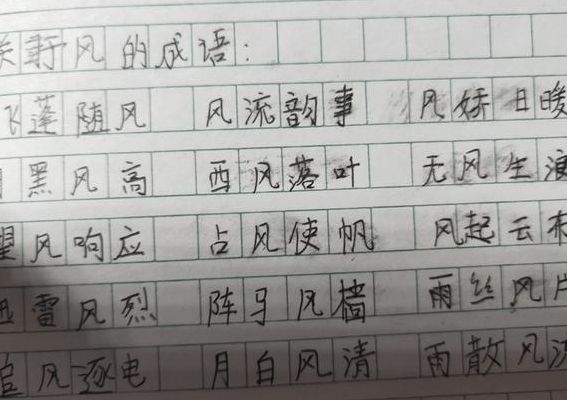 关于风的成语:
飞蓬随风 风流韵事 风娇日暖
月黑风高 西风落叶 无风生浪
望风响应 占风使帆 风起云布
迅雷风烈 阵马风樯 雨丝风片
追风逐电 月白风清 雨散风流